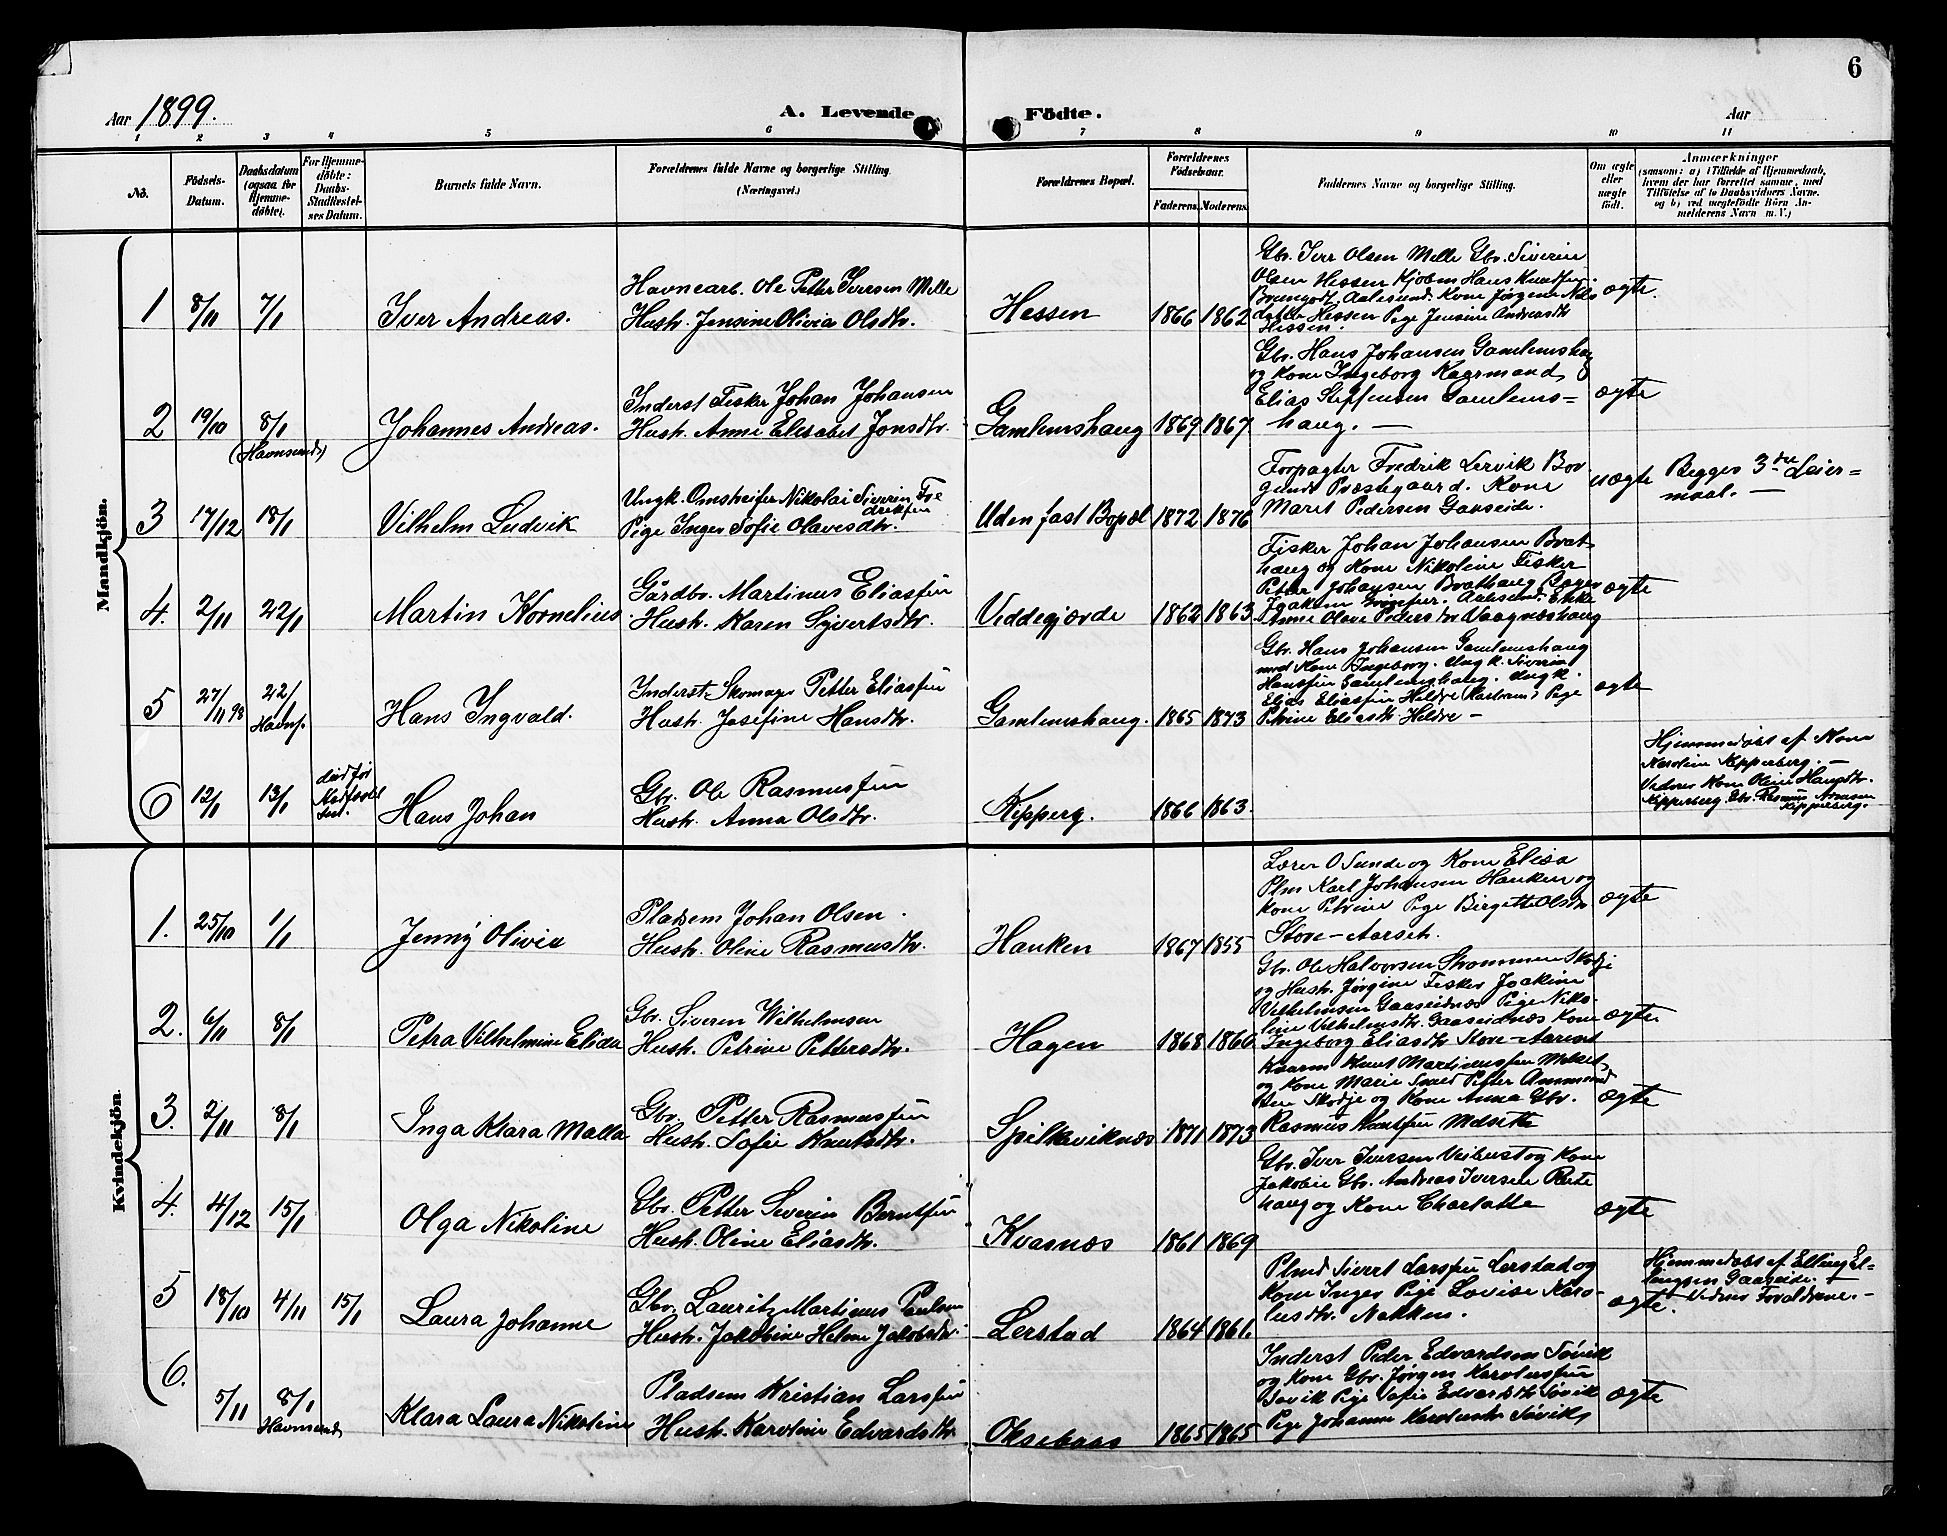 6
Aar 1899.
A. Levende Födte.
Aar
1 2 3 4 5 6 7 8 9 10 11
No.
Födsels-
Datum.
Daabsdatum
(ogsaa for
Hjemme-
döbte).
For Hjemme-
döbte:
Daabs-
Stadfæstel-
ses Datum.
Barnets fulde Navn.
Forældrenes fulde Navne og borgerlige Stilling.
(Næringsvei.)
Forældrenes Bopæl.
Forældrenes
Födselsaar.
Faderens. Moderens.
Faddernes Navne og borgerlige Stilling.
Om ægte
eller
uægte
födt.
Anmærkninger
(saasom: a) i Tilfælde af Hjemmedaab,
hvem der har forrettet samme, med
Tilföielse af to Daabsvidners Navne.
og b) ved uægtefödte Börn An-
melderens Navn m. V.)
Mandkjön.
1 8/11 7/1 Iver Andreas.
Havnearb. Ole Petter Iversen Melle
Hustr. Jensine Olivia Olsdtr.
Hessen 1866 1862
Gbr. Iver Olsen Melle Gbr. Siverin
Olsen Hessen Kjøbm Hans Knudsen
Aalesund. Kone Jørgine Nils
datter Hessen Pige Jensine Andreasdtr
Hessen.
ægte.
2 19/10 8/1 (Havnsund) Johannes Andreas.
Inderst Fisker Johan Johansen
Hustr. Anne Elisabet Jonsdtr.
Gamlemshaug 1869 1867
Gbr. Hans Johansen Gamlemshaug
og Kone Ingeborg Kaarmand
Elias Steffensen Gamlems-
haug. —
ægte
3 17/12 18/1 Vilhelm Ludvik
Ungk. Omstreifer Nikolai Siverin Fre
driksen
Pige Inger Sofie Olavesdtr.
Uden fast Bopæl 1872 1876
Forpagter Fredrik Lervik Bor
gund Præstegaard. Kone
Marit Pedersen Gaaseide.
uægte
Begges 3die Leier=
maal. —
4. 2/11 22/1 Martin Kornelius.
Gårdbr. Martinus Eliassen
Hustr. Karen Syvertsdtr.
Viddegjærde 1862 1863
Fisker Johan Johansen Brat-
haug og Kone Nikoline Fisker
Petter Johansen Brathaug Bager
Joakim Aalesund. Enke
Anne Olave Pedersdtr Vaagnæshaug
ægte
5 27/11 98 22/1 Havns. Hans Ingvald.
Inderst Skomager Petter Eliassen
Hustr. Josefine Hansdtr.
Gamlemshaug. 1865 1873
Gbr. Hans Johansen Gamlemshaug
med Kone Ingeborg. Ungk. Siverin
Hanssen Gamlemshaug. Ungk.
Elias Eliassen Heldre Pige
Petrine Eliasdtr Heldre —
ægte
6 12/1 13/1 død før
Stadfæstel
sen.
Hans Johan
Gbr. Ole Rasmussen
Hustr. Anna Olsdtr.
Kipperg. 1866 1863.
Hjemmedøbt af Kone
Karoline Kipperberg. —
Vidner Kone Oline Hansdtr.
Kipperberg Gbr. Rasmus
Kipperberg.
Kvindekjön.
1. 25/10 1/1 Jenny Olivia
Pladsem Johan Olsen.
Hustr. Oline Rasmusdtr.
Hanken 1867 1855
Lærer O Sunde og Kone Elisa
Plm Karl Johansen Hanken og
Kone Petrine Pige Birgitte Olsdtr
Store-Aarset.
ægte
2. 6/11 8/1 Petra Vilhelmine Elida
Gbr. Siveren Wilhelmsen
Hustr. Petrine Pettersdtr.
Hagen 1868 1860
Gbr. Ole Halvorsen Strømmen Skodje
og Hustr. Jørgine Fisker Joakim
Vilhelmsen Gaaseidnæs Pige Niko-
line Vilhelmsdtr. Gaaseidnæs Kone
Ingeborg Eliasdtr Store-Aarset
ægte
3. 2/11 8/1 Inga Klara Malla
Gbr. Petter Rasmussen
Hustr. Sofie Knutsdtr.
Spilkeviknæs 1871 1873
Kaarm Knut Martinussen
og Kone Marie Petter
Skodje og Kone Anna Gbr.
Rasmus Knutsen
ægte
4. 4/12 15/1 Olga Nikoline
Gbr. Petter Siverin Berntsen
Hustr. Oline Eliasdtr.
Kvasnæs 1861 1869
Gbr. Iver Iversen Veibust og Kone
Jakobie Gbr. Andreas Iversen
haug og Kone Charlotte
ægte
5 18/10 4/11 15/1 Laura Johanne
Gbr. Lauritz Martinus Paulsen
Hustr. Jakobine Helene Jakobsdtr.
Lerstad 1864 1861.
Plmd Sivert Larssen Lerstad og
Kone Inger Pige Lovise Karo-
lusdtr. Nakken.
ægte.
Hjemmedøbt af Elling El-
lingsen Gaaseide. —
Vidner Forældrene. —
6. 5/11 8/1 Havnsund Klara Laura Nikoline
Pladsem Kristian Larssen
Hustr. Karoline Edvardsdtr.
Oksebaas 1865 1865
Inderst Peder Edvardsen Søvik
og Kone Gbr. Jørgen Karolussen
Søvik Pige Sofie Edvardsdtr Søvik
Pige Johanne Karolusdtr Søvik
ægte